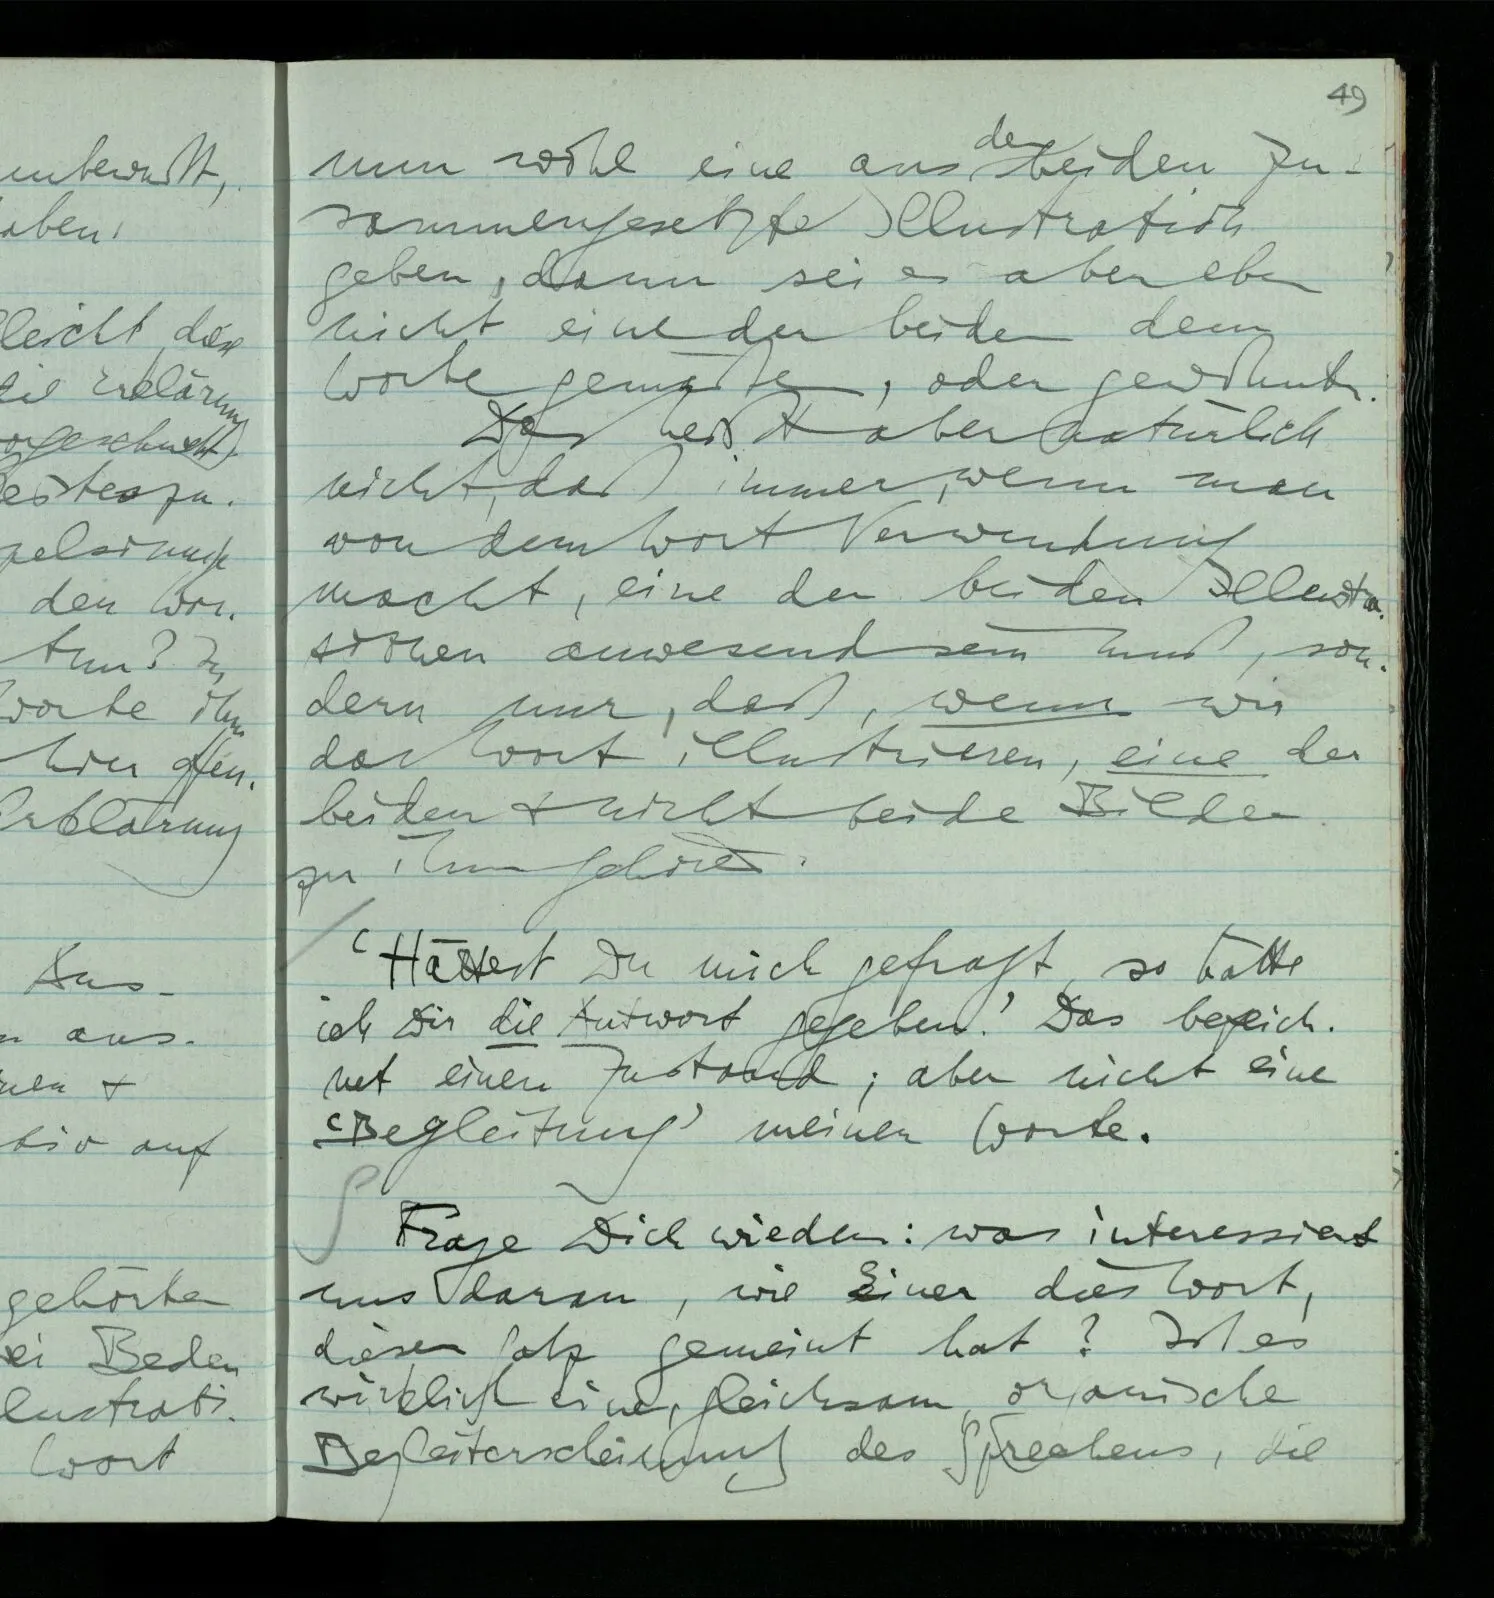 unbewußt,
aben:
leicht, daß
die Erklärung
vorgeschwebt
den Wor-
tun? In
Worte ihm
hier offen.
Erklärung
Aus-
n aus-
nen +
tiv auf
gehörten
ei Beden
lustrati-
Wort
49
nun wohl eine aus den beiden zu-
sammengesetzte Illustration
geben, dann sei es aber eben
nicht eine der beiden dem
Worte gemäßen, oder gewohnten.
Das heißt aber natürlich
nicht, daß immer, wenn man
von dem Wort Verwendung
macht, eine der beiden Illustra-
tionen anwesend sein muß, son-
dern nur, daß, wenn wir
das Wort illustrieren, eine der
beiden + nicht beide Bilder
zu ihm gehört.
'Hättest Du mich gefragt, so hätte
ich Dir die Antwort gegeben.' Das bezeich-
net einen Zustand; aber nicht eine
'Begleitung' meiner Worte.
S
Frage Dich wieder: was interessiert
uns daran, wie Einer dies Wort,
diesen Satz gemeint hat? Ist es
wirklich eine, gleichsam, organische
Begleiterscheinung des Sprechens, die